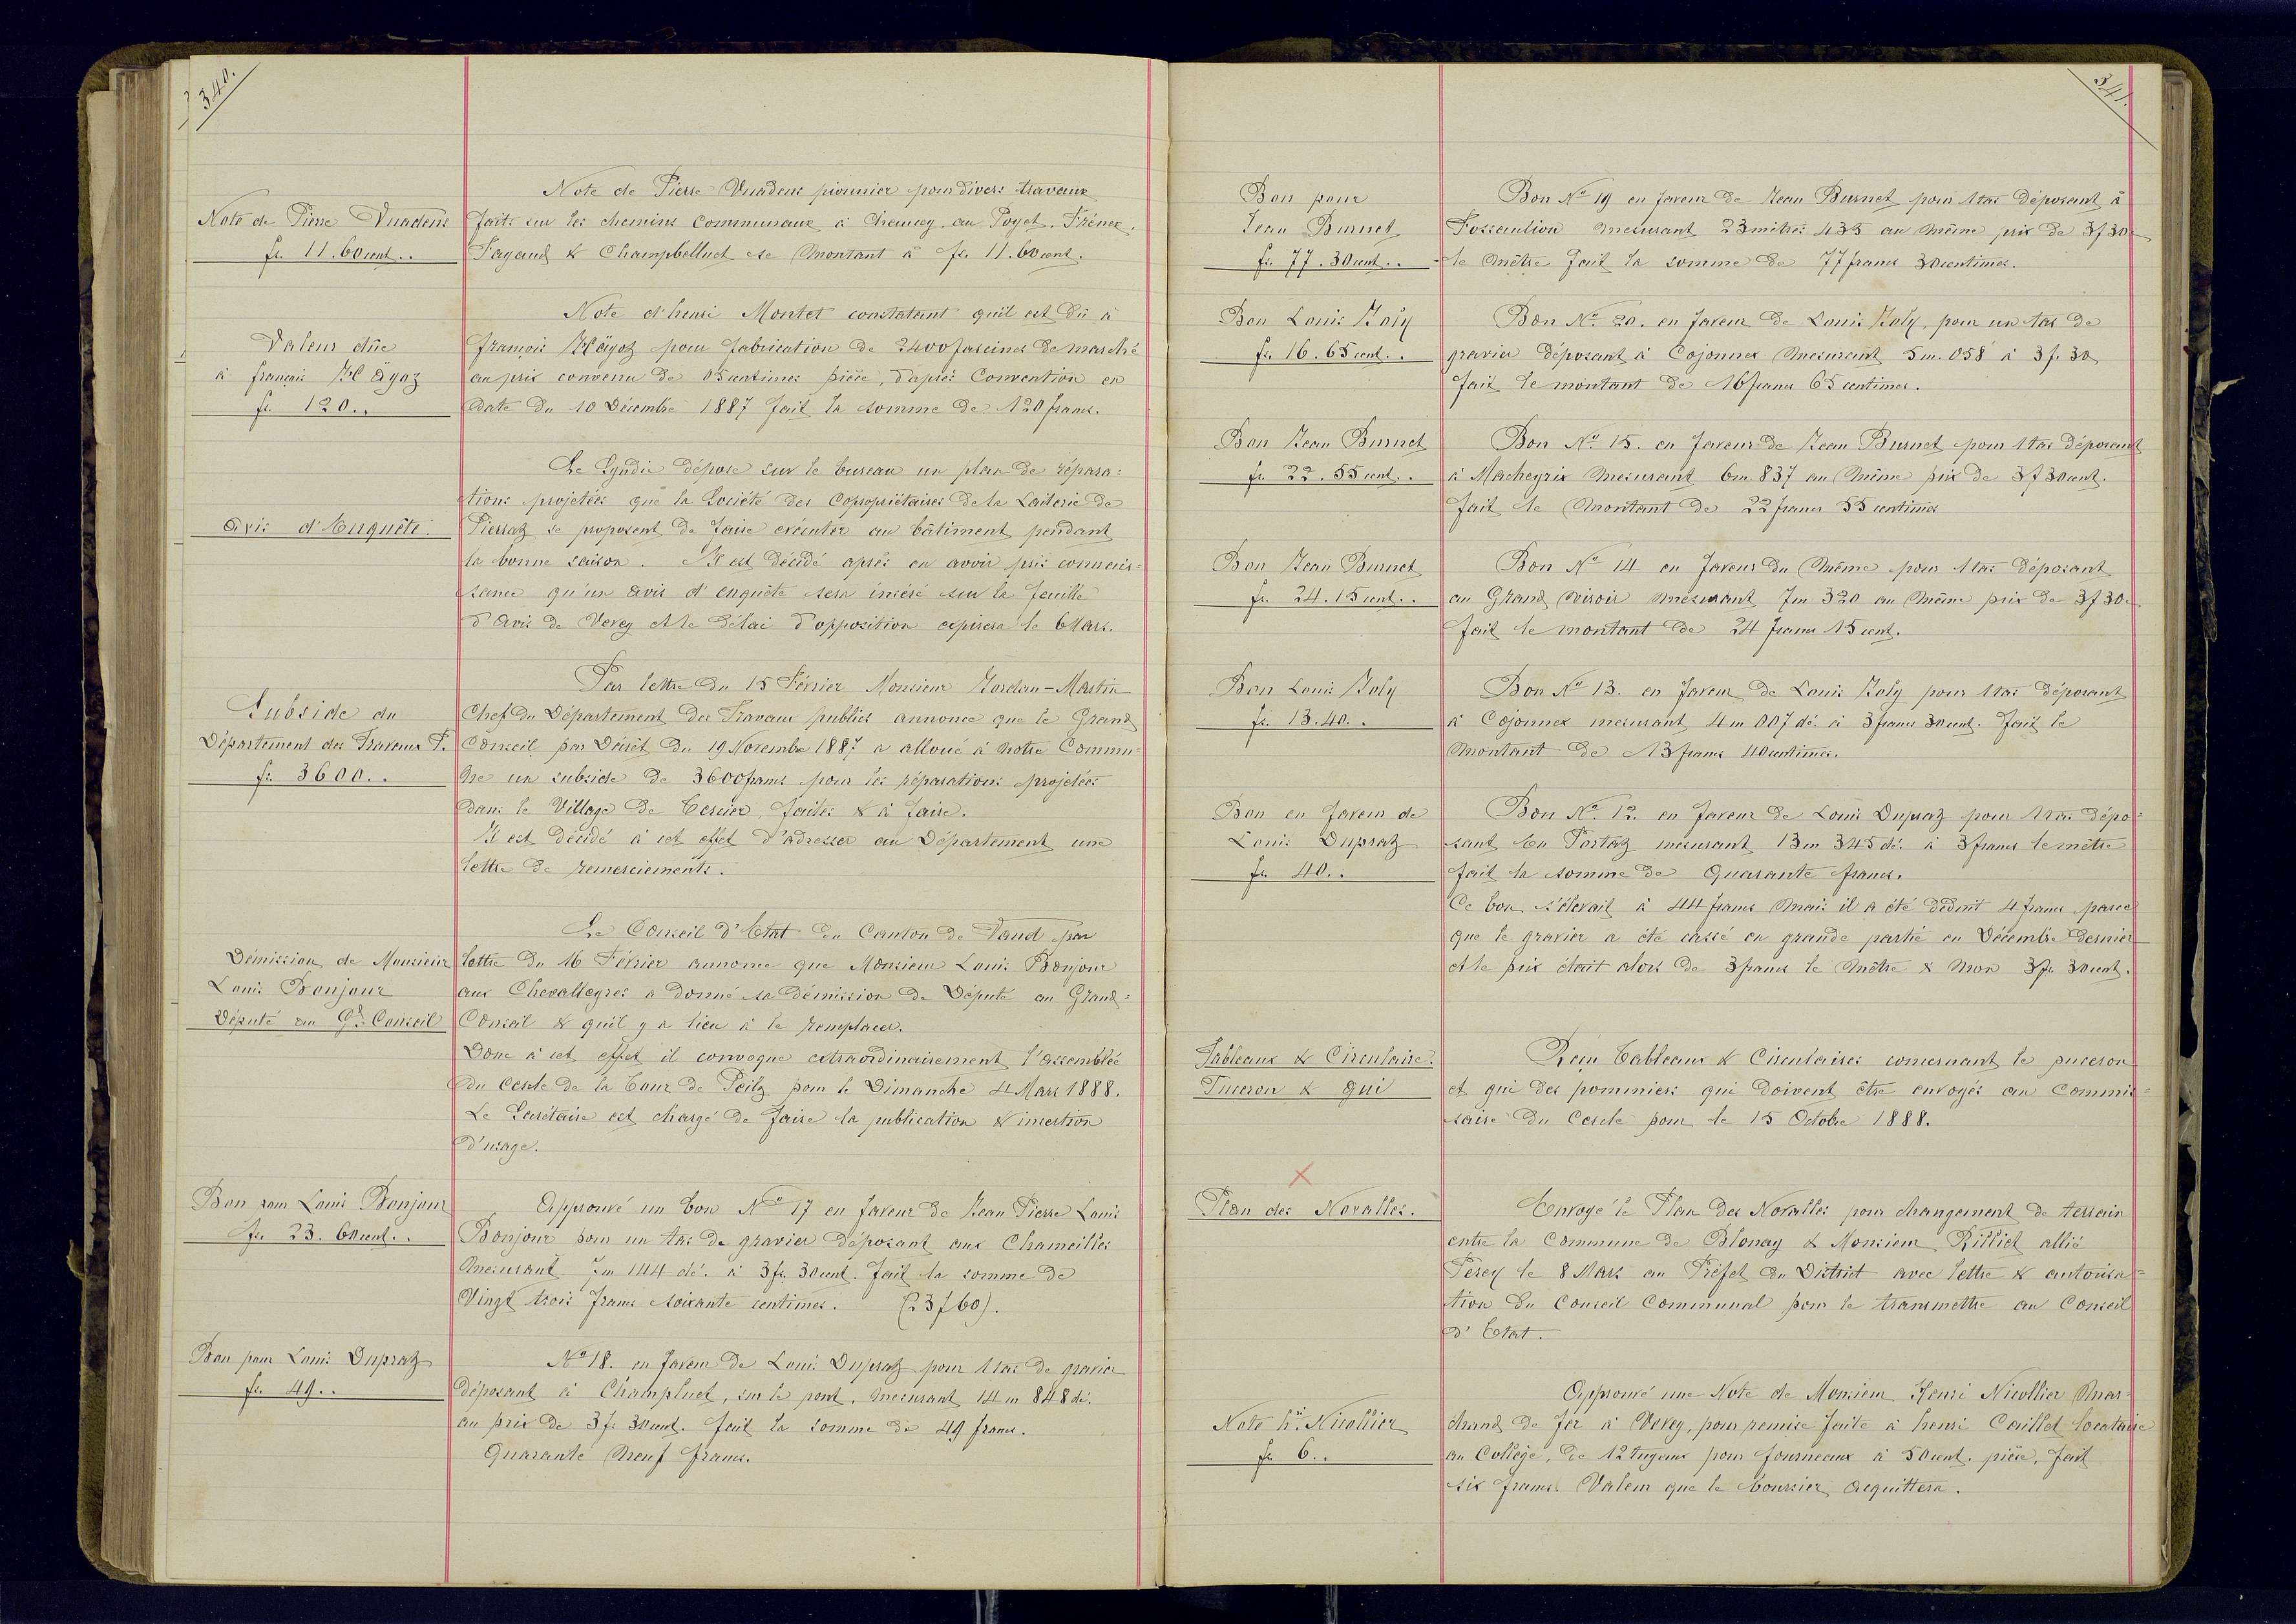 340.
Note de Pierre Vuadens
fr. 11.60 cent..
Note de Pierre Vuadens pionnier pour divers travaux
faits sur les chemins communaux à Chaucey au Poyet. Frénex.
Fayaud & Champbelluet se montant à fr. 11.60 cent.
Valeur dûe
à françois Mägoz
fr. 120..
Note d'henri Montet constatant qu'il est dû à
françois Mägoz pour fabrication de 2400 fascines de marché
au prix convenu de 05 centimes pièce, d'après Convention en
date du 10 Décembre 1887 fait la somme de 120 francs.
Avis d'Enquête.
Le Syndic dépose sur le bureau un plan de répara=
tions projetées que la Société des Copropriétaires de la Laiterie de
Pierraz se proposent de faire exécuter au bâtiment pendant
la bonne saison. Il est décidé après en avoir pris connais=
sance qu'un avis d'enquête sera inséré sur la feuille
d'Avis de Vevey et le délai d'opposition expirera le 6 Mars.
Subside du
Département des Travaux P.
fr. 3600..
Par lettre du 15 Février Monsieur Jordan-Martin
Chef du Département des Travaux publics annonce que le Grand
Conseil par Décrèt du 19 Novembre 1887 a alloué à notre Commu=
ne un subside de 3600 francs pour les réparations projetées
dans le Village de Tercier, faites & à faire.
Il est décidé à cet effet d'adresser au Département une
lettre de remerciements.
Démission de Monsieur
Louis Bonjour
Député au Gd. Conseil
Le Conseil d'Etat du Canton de Vaud par
lettre du 16 Février annonce que Monsieur Louis Bonjour
aux Chevalleyres a donné sa démission de Député au Grand=
Conseil & qu'il y a lieu à le remplacer.
Donc à cet effet il convoque extraordinairement l'assemblée
du Cercle de la Tour de Peilz pour le Dimanche 4 Mars 1888.
Le Secrétaire est chargé de faire la publication & insertion
d'usage.
Bon pour Louis Bonjour
fr. 23. 60 cent..
Approuvé un bon No 17 en faveur de Jean Pierre Louis
Bonjour pour un tas de gravier déposant aux Chameilles
mesurant 7m 144 dé. à 3 fr. 30 cent. fait la somme de
Vingt trois francs soixante centimes. (23 f 60).
Bon pour Louis Dupraz
fr. 49..
No 18. en faveur de Louis Dupraz pour 1 tas de gravier
déposant à Champluet, sur le pont, mesurant 14 m 848 dé.
au prix de 3 fr. 30 cent. fait la somme de 49 francs.
Quarante Neuf francs.
341.
Bon pour
Jean Burnet
fr. 77.30 cent..
Bon No 19 en faveur de Jean Burnet pour 1 tas déposant à
Fossaulion mesurant 23 mètres 435 au même prix de 3 f 30 c
le mètre fait la somme de 77 francs 30 centimes.
Bon Louis Joly
fr. 16.65 cent..
Bon No 20. en faveur de Louis Joly, pour un tas de
gravier déposant à Cojonnex mesurant 5 m. 058 à 3 f. 30
fait le montant de 16 francs 65 centimes.
Bon Jean Burnet
fr. 22.55 cent..
Bon No 15. en faveur de Jean Burnet pour 1 tas déposant
à Macheyrix mesurant 6m. 837 au même prix de 3 f 30 cent.
fait le montant de 22 francs 55 centimes
Bon Jean Burnet
fr. 24.15 cent..
Bon No 14 en faveur du même pour 1 tas déposant
au Grand mesurant 7m 320 au même prix de 3 f 30 c
fait le montant de 24 francs 15 cent.
Bon Louis Joly
fr. 13.40..
Bon No 13. en faveur de Louis Joly pour 1 tas déposant
à Cojonnex mesurant 4 m 007 dé. à 3 francs 30 cent. fait le
montant de 13 francs 40 centimes.
Bon en faveur de
Louis Dupraz
fr. 40..
Bon No 12. en faveur de Louis Dupraz pour 1 tas dépo=
sant En Portaz mesurant 13 m 345 dé. à 3 francs le mètre
fait la somme de Quarante francs.
Ce bon s'élevait à 44 francs mais il a été déduit 4 francs parce
que le gravier a été cassé en grande partie en Décembre dernier
et le prix était alors de 3 francs le mètre & non 3 fr. 30 cent.
Tableaux & Circulaires.
Puceron & gui
Reçu Tableaux & Circulaires concernant le puceron
et gui des pommiers qui doivent être envoyés au Commis=
saire du Cercle pour le 15 Octobre 1888.
Plan des Novalles.
Envoyé le Plan des Novalles pour changement de terrain
entre la Commune de Blonay & Monsieur Rilliet allié
Perey le 8 Mars au Préfet du District avec lettre & autorisa=
tion du Conseil Communal pour le transmettre au Conseil
d'Etat.
Note hri Nicollier
fr. 6..
Approuvé une Note de Monsieur Henri Nicollier mar=
chand de fer à Vevey, pour remise faite à henri Caillet locataire
au Collège, de 12 tuyaux pour fourneaux à 50 cent. pièce, fait
six francs. Valeur que le boursier acquittera.